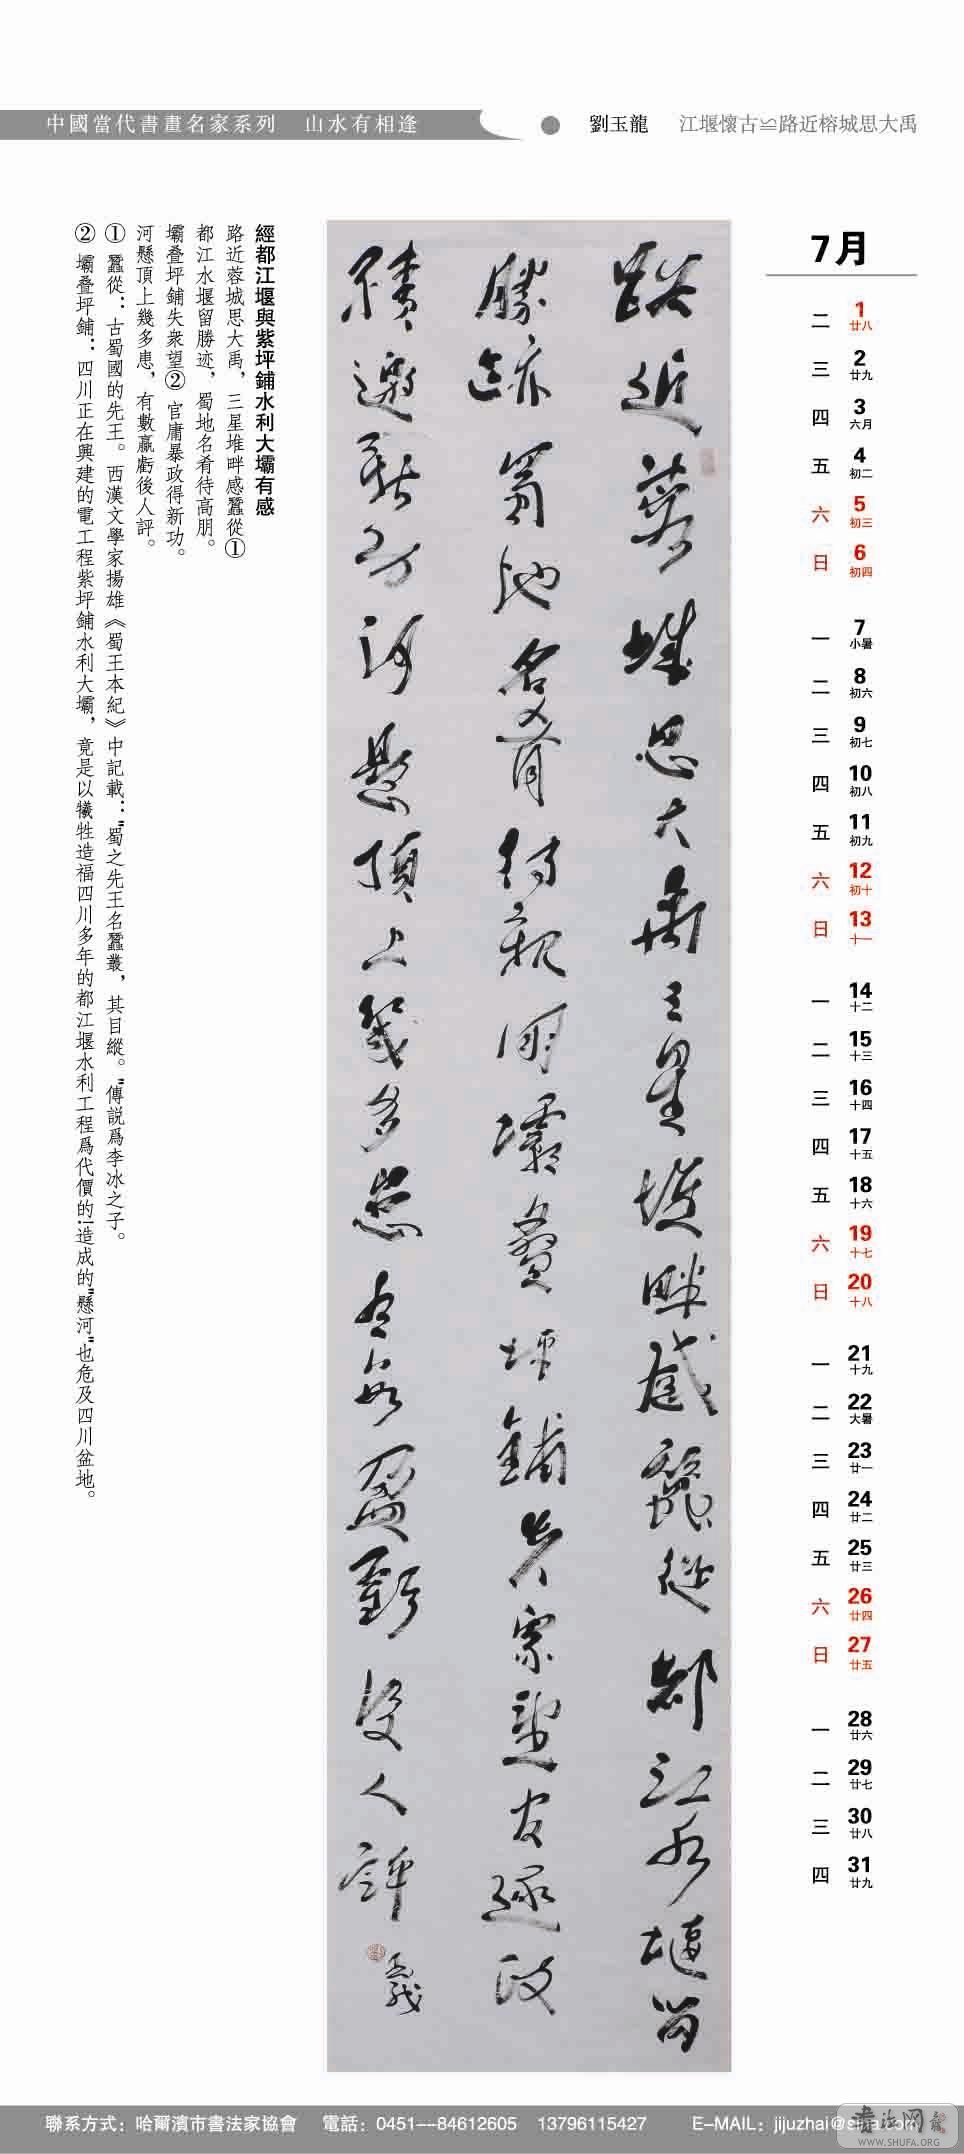 中國當代書畫名家系列 山水有相逢 ● 劉玉龍 江堰懷古≌路近榕城思大禹
7月
二 1 廿八
三 2 廿九
四 3 六月
五 4 初二
六 5 初三
日 6 初四
一 7 小暑
二 8 初六
三 9 初七
四 10 初八
五 11 初九
六 12 初十
日 13 十一
一 14 十二
二 15 十三
三 16 十四
四 17 十五
五 18 十六
六 19 十七
日 20 十八
一 21 十九
二 22 大暑
三 23 廿一
四 24 廿二
五 25 廿三
六 26 廿四
日 27 廿五
一 28 廿六
二 29 廿七
三 30 廿八
四 31 廿九
路近蓉城思大禹三星堆畔感蠶從都江水堰留
勝迹蜀地名肴待親朋壩叠坪鋪失衆望官逐政
績邀新功河懸頂上幾多患有數盈虧後人評
玉龍
經都江堰與紫坪鋪水利大壩有感
路近蓉城思大禹，三星堆畔感蠶從①
都江水堰留勝迹，蜀地名肴待高朋。
壩叠坪鋪失衆望②官庸暴政得新功。
河懸頂上幾多患，有數贏虧後人評。
① 蠶從：古蜀國的先王。西漢文學家揚雄《蜀王本紀》中記載："蜀之先王名蠶叢，其目縱。"傳説爲李冰之子。
② 壩叠坪鋪：四川正在興建的電工程紫坪鋪水利大壩，竟是以犧牲造福四川多年的都江堰水利工程爲代價的!造成的"懸河"也危及四川盆地。
聯系方式：哈爾濱市書法家協會 電話：0451---84612605 13796115427 E-MAIL：jijuzhai@sina.com
书法网
WWW.SHUFA.ORG